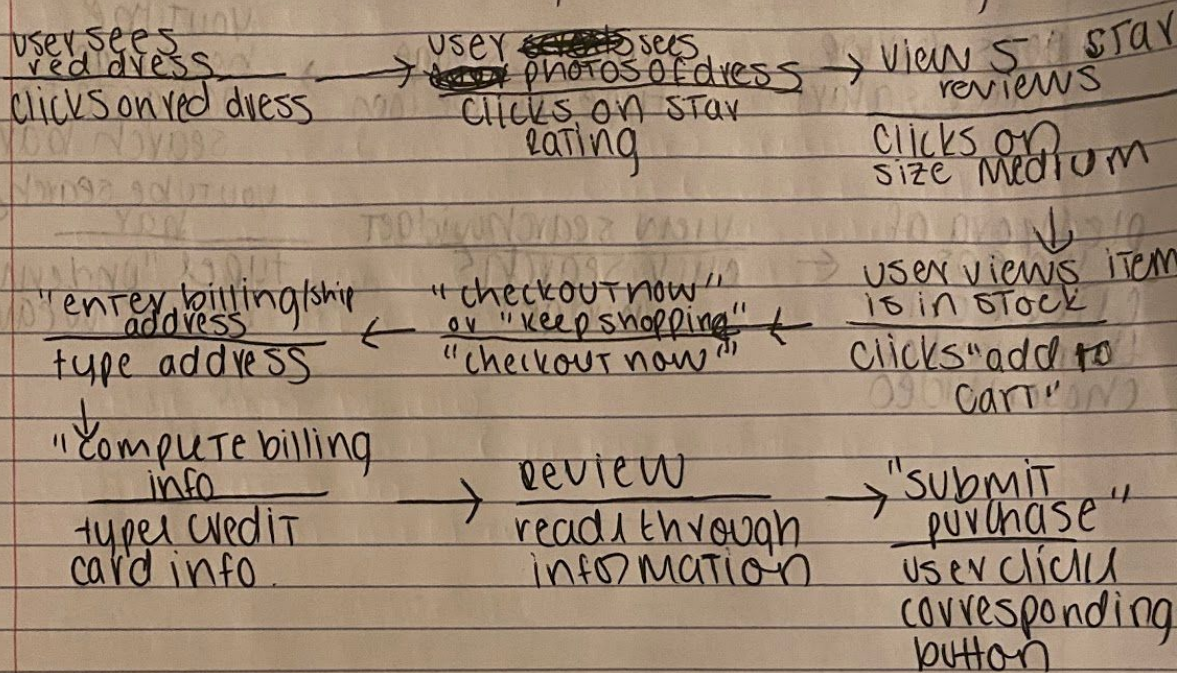 user sees
red dress
clicks on red dress
user sees
photos of dress
clicks on star
rating
view 5 star
reviews
clicks on
size medium
user views item
is in stock
clicks "add to
cart"
"checkout now"
or "keep shopping"
"checkout now"
"enter billing/ship
address
type address
"compute billing
info
types credit
card info.
review
reads through
information
"submit
purchase"
user clicks
corresponding
button